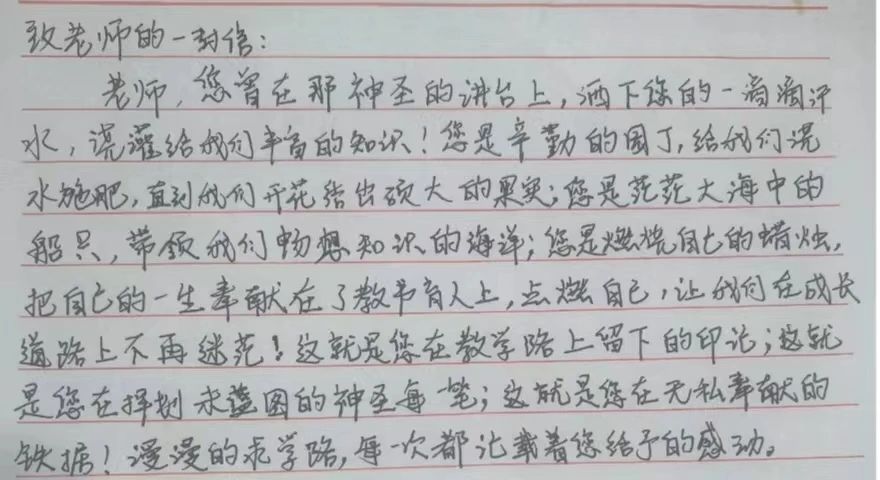 致老师的一封信：
老师，您曾在那神圣的讲台上，洒下您的一滴滴汗
水，浇灌给我们丰富的知识！您是辛勤的园丁，给我们浇
水施肥，直到我们开花结出硕大的果实；您是茫茫大海中的
船只，带领我们畅想知识的海洋；您是燃烧自己的蜡烛，
把自己的一生奉献在了教书育人上，点燃自己，让我们在成长
道路上不再迷茫！这就是您在教学路上留下的印记；这就
是您在挥划未蓝图的神圣每一笔；这就是您在无私奉献的
铁据！漫漫的求学路，每一次都记载着您给予的感动。